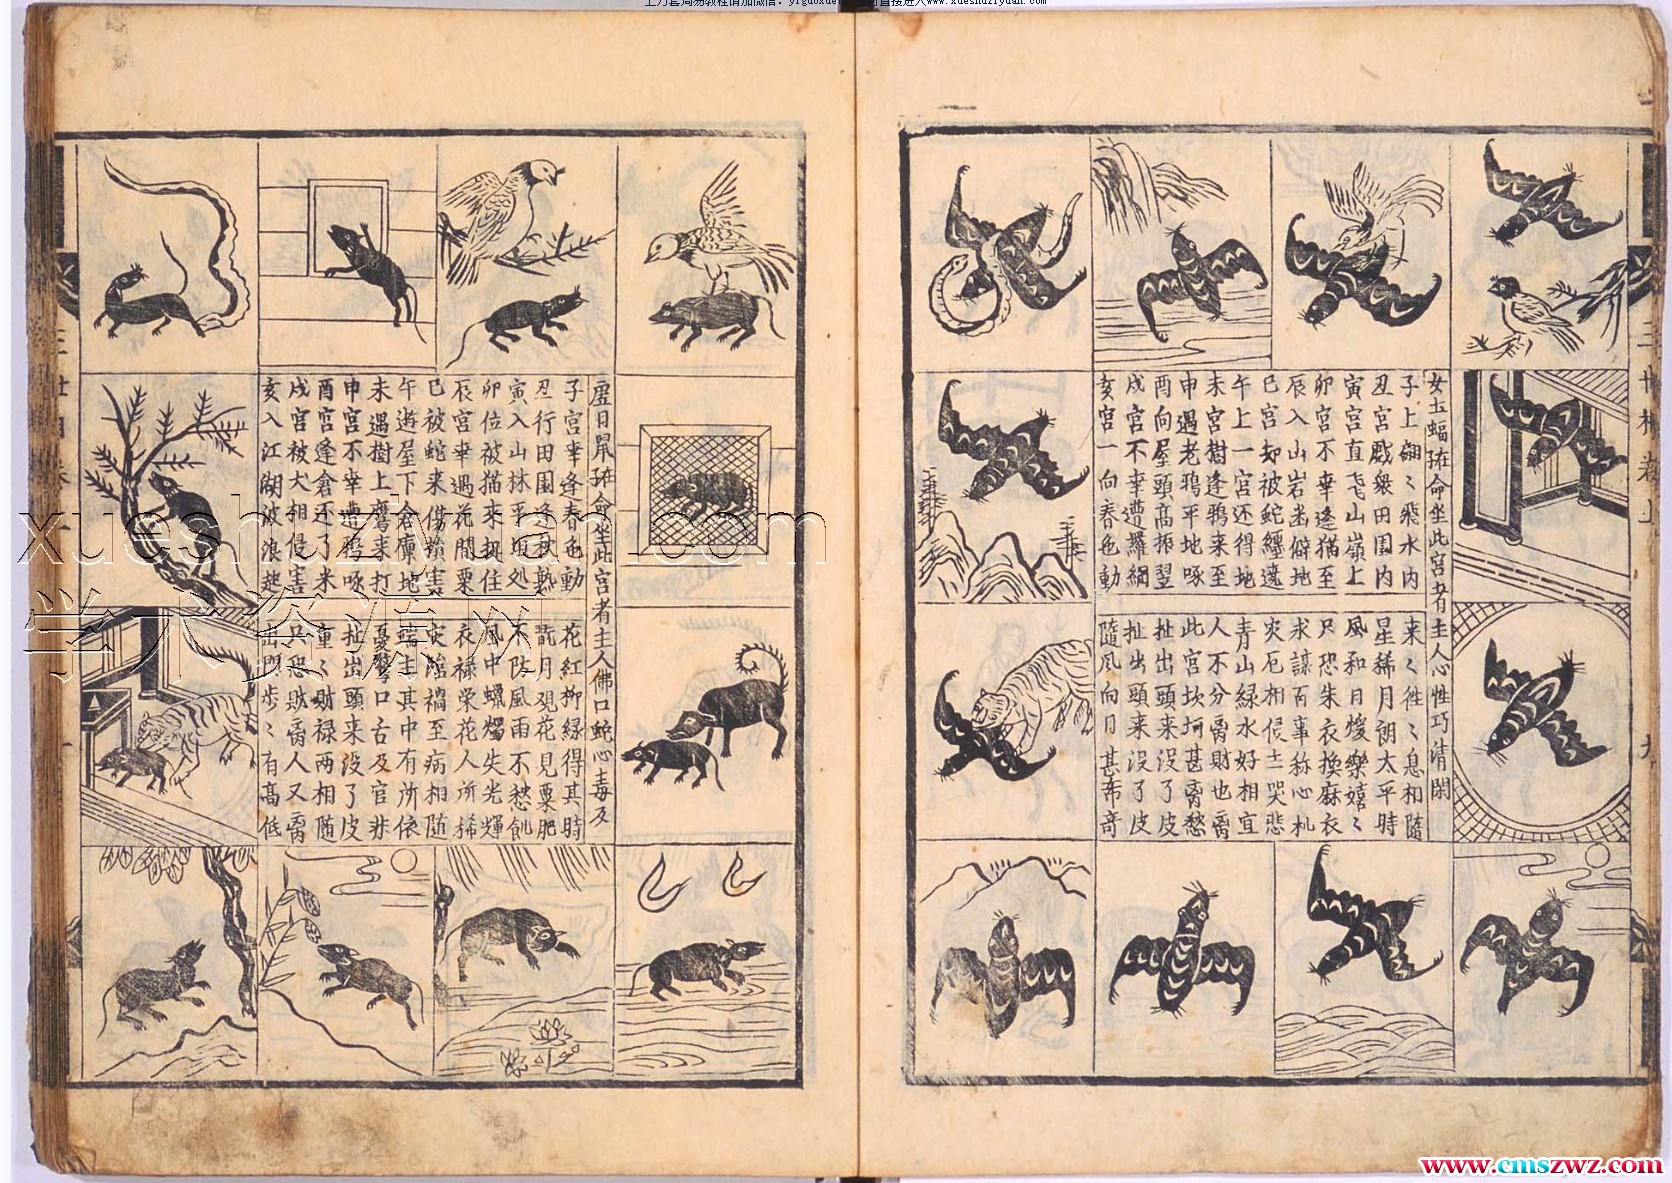 女土蝠班命坐此宮者主人心性巧清閑
子上翩〻飛水内
丑宫戲衆田園内
寅宫直飞山嶺上
卯宫不幸逢猫至
辰入山岩岀僻地
巳宫却被蛇纏遶
午上一宫还得地
未宫樹逢鴉来至
申遇老鴉平地啄
酉向屋頭高振翌
戌宫不幸遭羅網
亥宫一向春色動
来〻徃〻息相隨
星稀月朗太平時
風和日煖樂嬉〻
只恐朱衣換麻衣
求謀百事称心札
灾厄相侵主哭悲
青山緑水好相宜
人不分离財也离
此宫坎坷甚离愁
扯出頭来没了皮
扯出頭来没了皮
隨風向日甚希竒
三世相卷上
九
虚日鼠班命坐此宮者主人佛口蛇心毒及
子宫幸逢春色動
丑行田園逢秋熟
寅入山林平坦処
卯位被猫来捉住
辰宫幸遇花間粟
巳被蛇来傷損害
午逰屋下倉廩地
未遇樹上鷹来打
申宫不幸遭鴉啄
酉宫逢倉还了米
戌宫被犬相侵害
亥入江湖波浪趂
花紅柳緑得其時
翫月覌花見粟肥
不防風雨不愁飢
風中蠟燭失光輝
衣禄榮花人所稀
灾臨禍至病相随
端主其中有所依
憂驚口舌及官非
扯出頭来没了皮
重〻財禄兩相随
只恐財离人又离
出門步〻有高低
xueshuziyuan.com
学术资源网
www.cmszwz.com